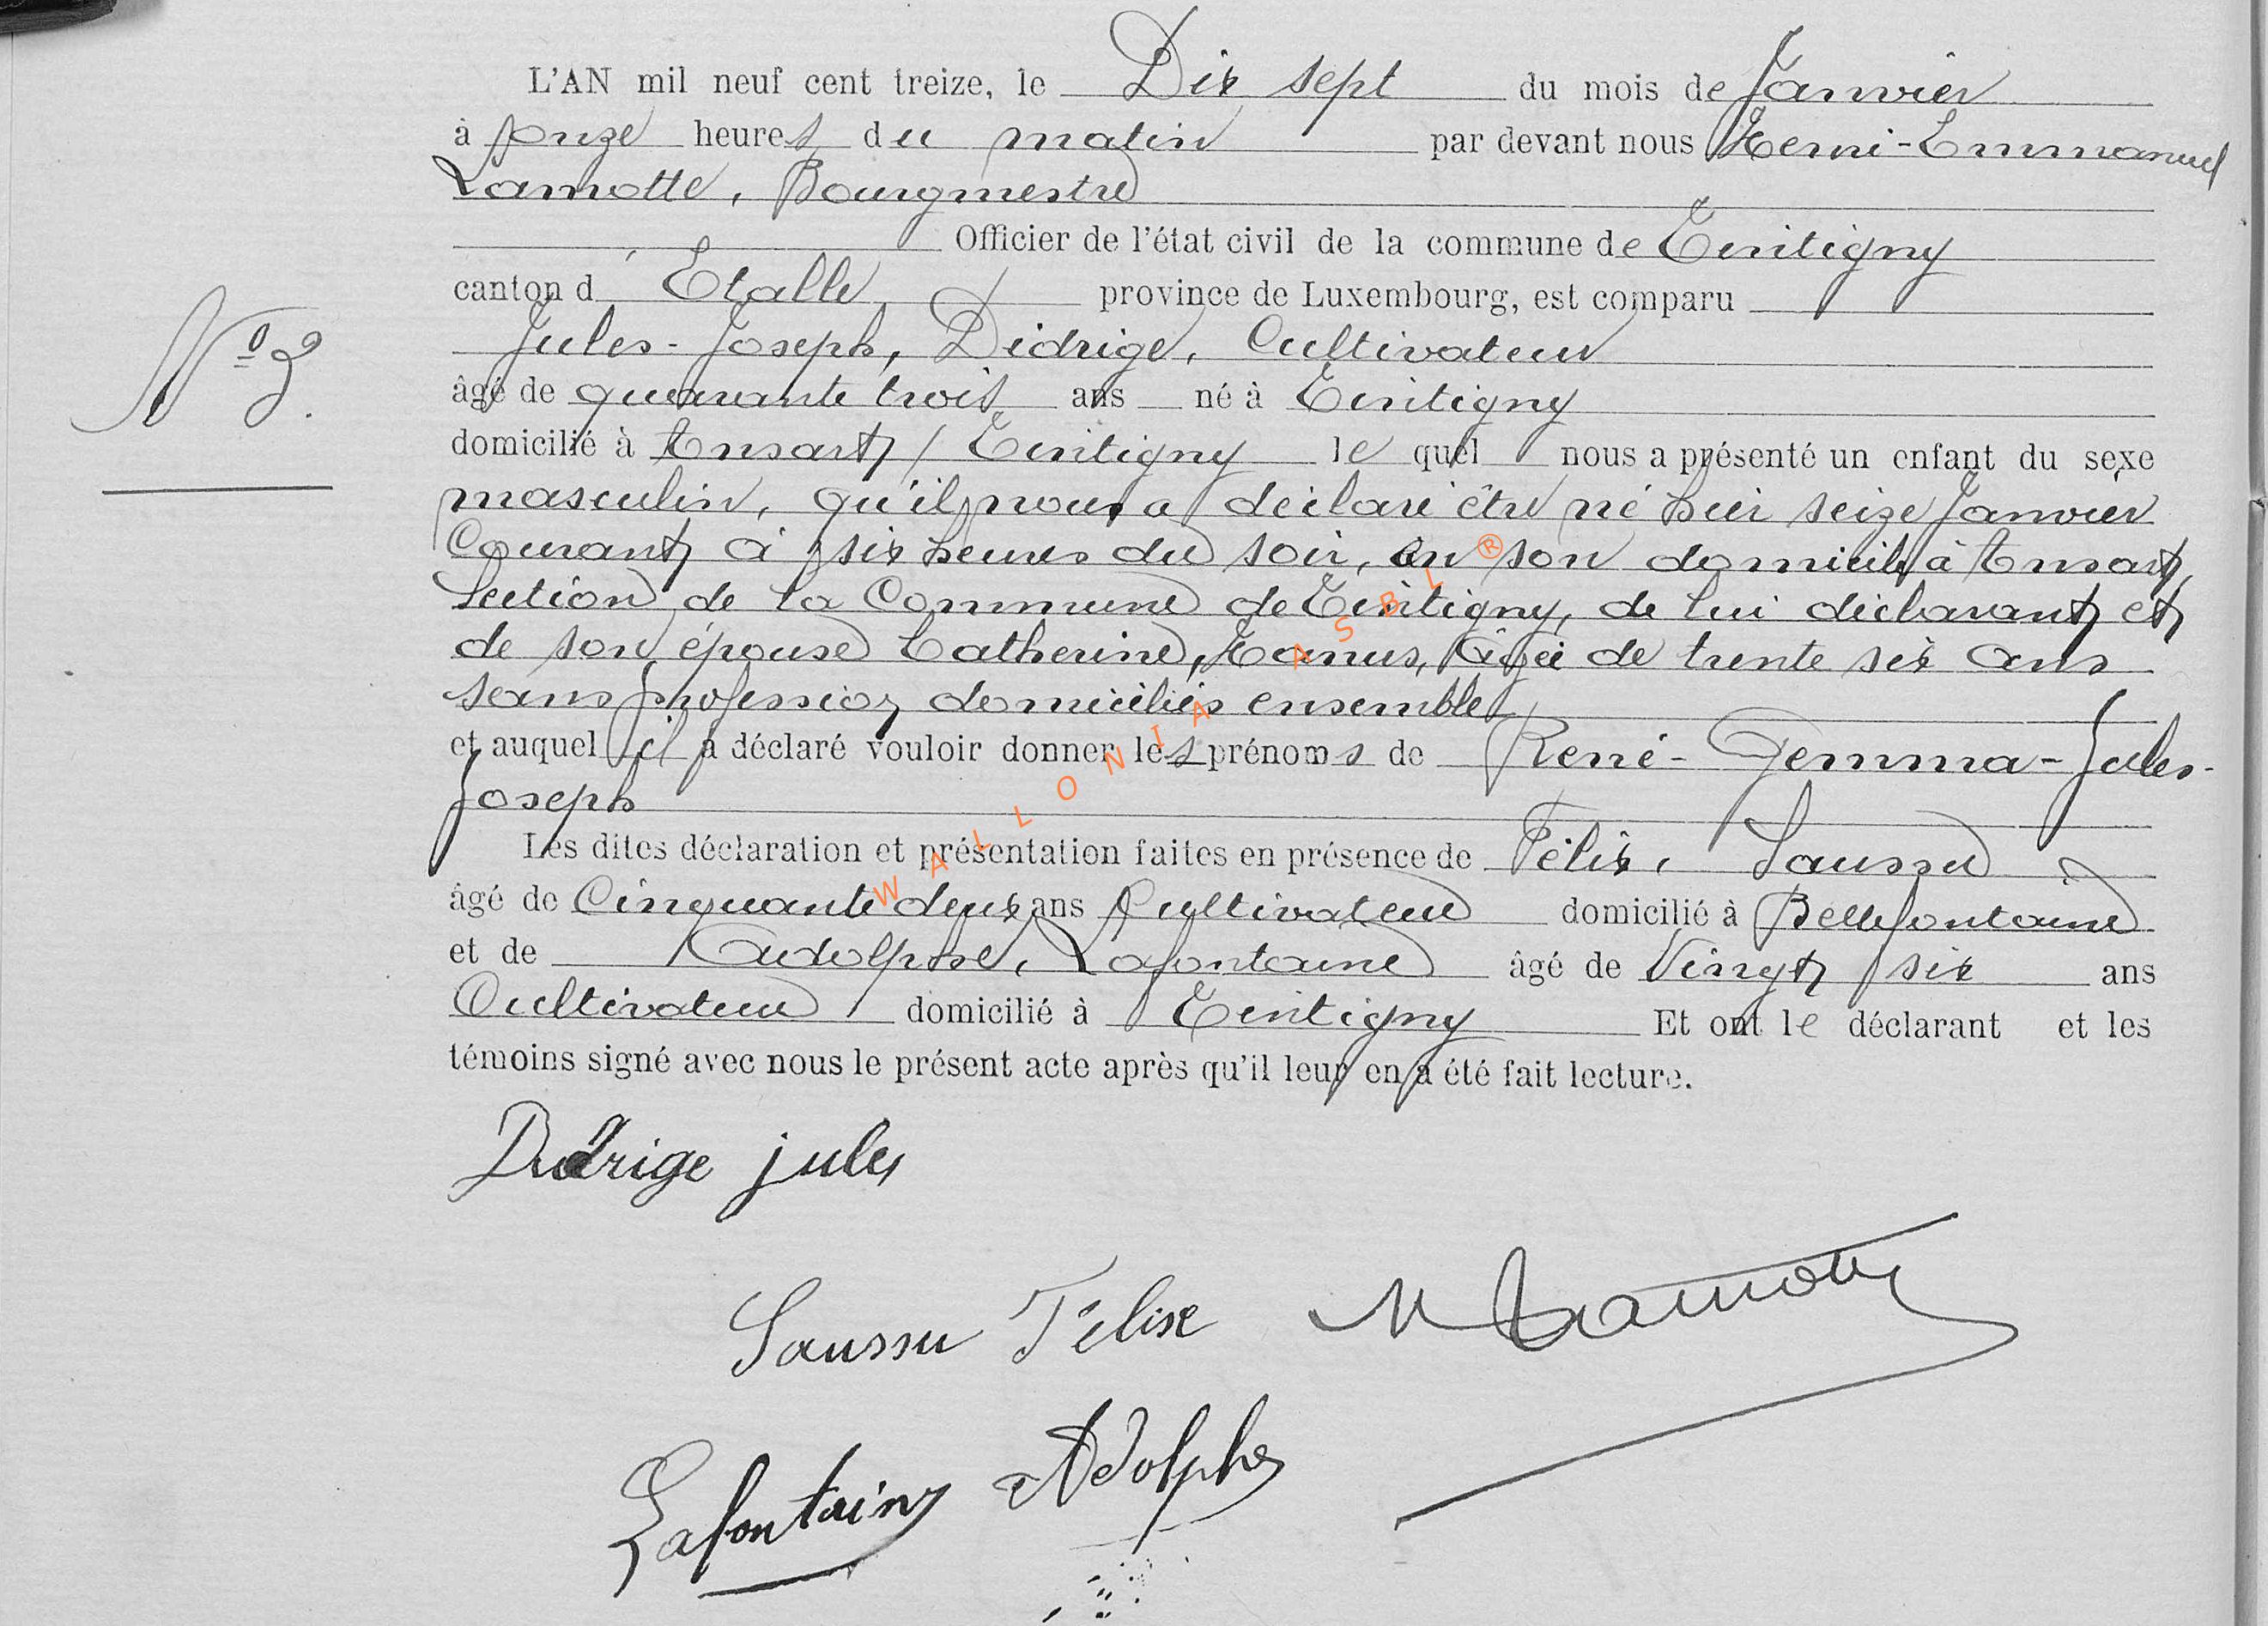 L'AN mil neuf cent treize, le Dix sept du mois de Janvier
à onze heures du matin par devant nous Henri-Emmanuel
Lamotte, Bourgmestre
Officier de l'état civil de la commune de Tintigny
canton d'Etalle province de Luxembourg, est comparu
Jules-Joseph, Didrige, Cultivateur
N° 3.
âgé de quarante trois ans né à Tintigny
domicilié à Ansart / Tintigny lequel nous a présenté un enfant du sexe
masculin, qu'il nous a déclaré être né hier seize Janvier
Courant à six heures du soir, en son domicile à Ansart,
Section de la Commune de Tintigny, de lui déclarant et
de son épouse Catherine, Hanus, âgée de trente six ans
sans profession domiciliés ensemble
et auquel il a déclaré vouloir donner les prénoms de René-Gemma-Jules-
Joseph
Les dites déclaration et présentation faites en présence de Félix, Saussu
âgé de Cinquante deux ans Cultivateur domicilié à Bellefontaine
et de Adolphe, Lafontaine âgé de Vingt six ans
Cultivateur domicilié à Tintigny Et ont le déclarant et les
témoins signé avec nous le présent acte après qu'il leur en a été fait lecture.
Didrige jules
Saussu Félix
Lamotte
Lafontaine Adolphe
WALLONIA ASBL ®